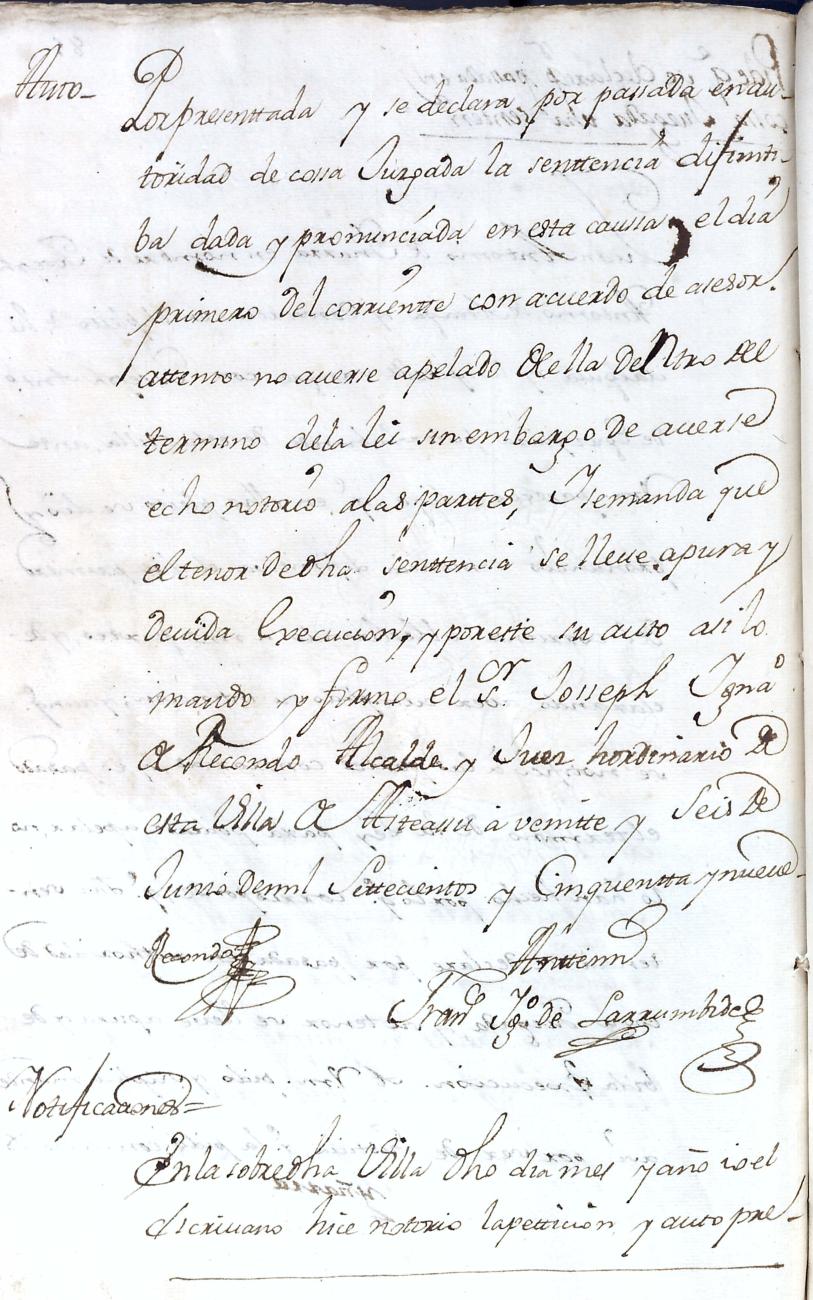 Auto-
Por presenttada y se declara por passada en au-
toridad de cossa Juzgada la senttencia difiniti-
ba dada y pronunciada en esta caussa el dia
primero del corrientte con acuerdo de asesor.
attento no auerse apelado de ella dentro del
termino dela lei sin embargo de auerse
echo notorio alas parttes, Y semanda que
el tenor de dha senttencia se lleue a pura y
deuida execucion, y por este su auto asi lo
mando y firmo el sr. Josseph Ignao
de Recondo Alcalde y Juez hordinario de
esta Villa de Asteasu a veintte y seis de
Junio de mil Settecientos y Cinquentta y nueue-
Recondo
Anttemi
Franco Igo de Larrumbide
Notificaciones=
En la sobre dha Villa dho dia mes y año io el
escriuano hice notorio la pettición y auto pre-